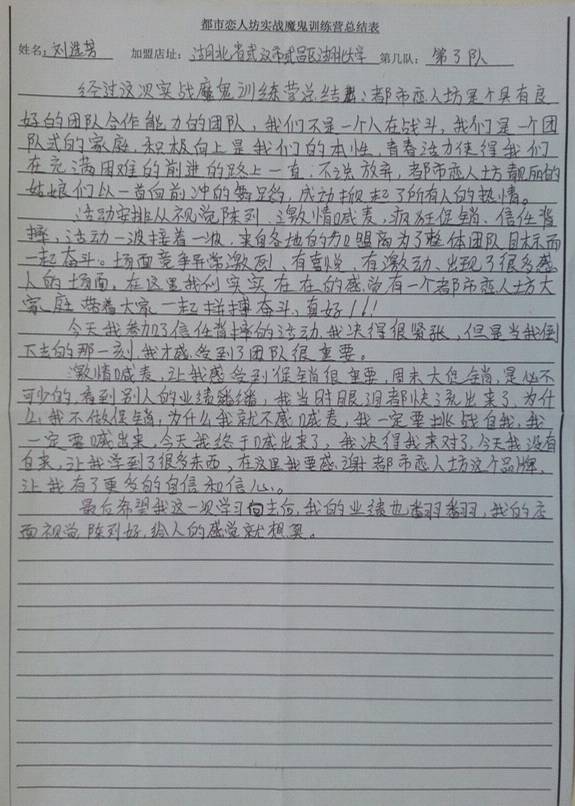 都市恋人坊实战魔鬼训练营总结表
姓名：刘选芳 加盟店址：湖北省武汉市武昌区湖北大学 第几队：第3队
经过这次实战魔鬼训练营总结：都市恋人坊是个具有良
好的团队合作能力的团队，我们不是一个人在战斗，我们是一个团
队式的家庭，积极向上是我们的本性，青春活力使得我们
在充满困难的前进的路上一直，不言放弃，都市恋人坊靓丽的
姑娘们以一首向前冲的舞蹈，成功掀起了所有人的热情。
活动安排从视觉陈列、激情喊麦，疯狂促销、信任背
摔，活动一波接着一波，来自各地的加盟商为了整体团队目标而
一起奋斗。场面竞争异常激烈，有喜悦，有激动、出现了很多感
人的场面，在这里我们实实在在的感觉有一个都市恋人坊大
家庭带着大家一起拼搏奋斗，真好！！！
今天我参加了信任背摔的活动，我决得很紧张，但是当我倒
下去的那一刻，我才感受到了团队很重要。
激情喊麦，让我感受到促销很重要，周末大促销，是必不
可少的，看到别人的业绩，我当时眼泪都快流出来了，为什
么我不做促销，为什么我就不感喊麦，我一定要挑战自我，我
一定要喊出来，今天我终于喊出来了，我决得我来对了，今天我没有
白来，让我学到了很多东西，在这里我要感谢都市恋人坊这个品牌，
让我有了更多的自信和信心。
最后希望我这一次学习回去后，我的业绩也翻翻，我的店
面视觉陈列好，给人的感觉就想买。